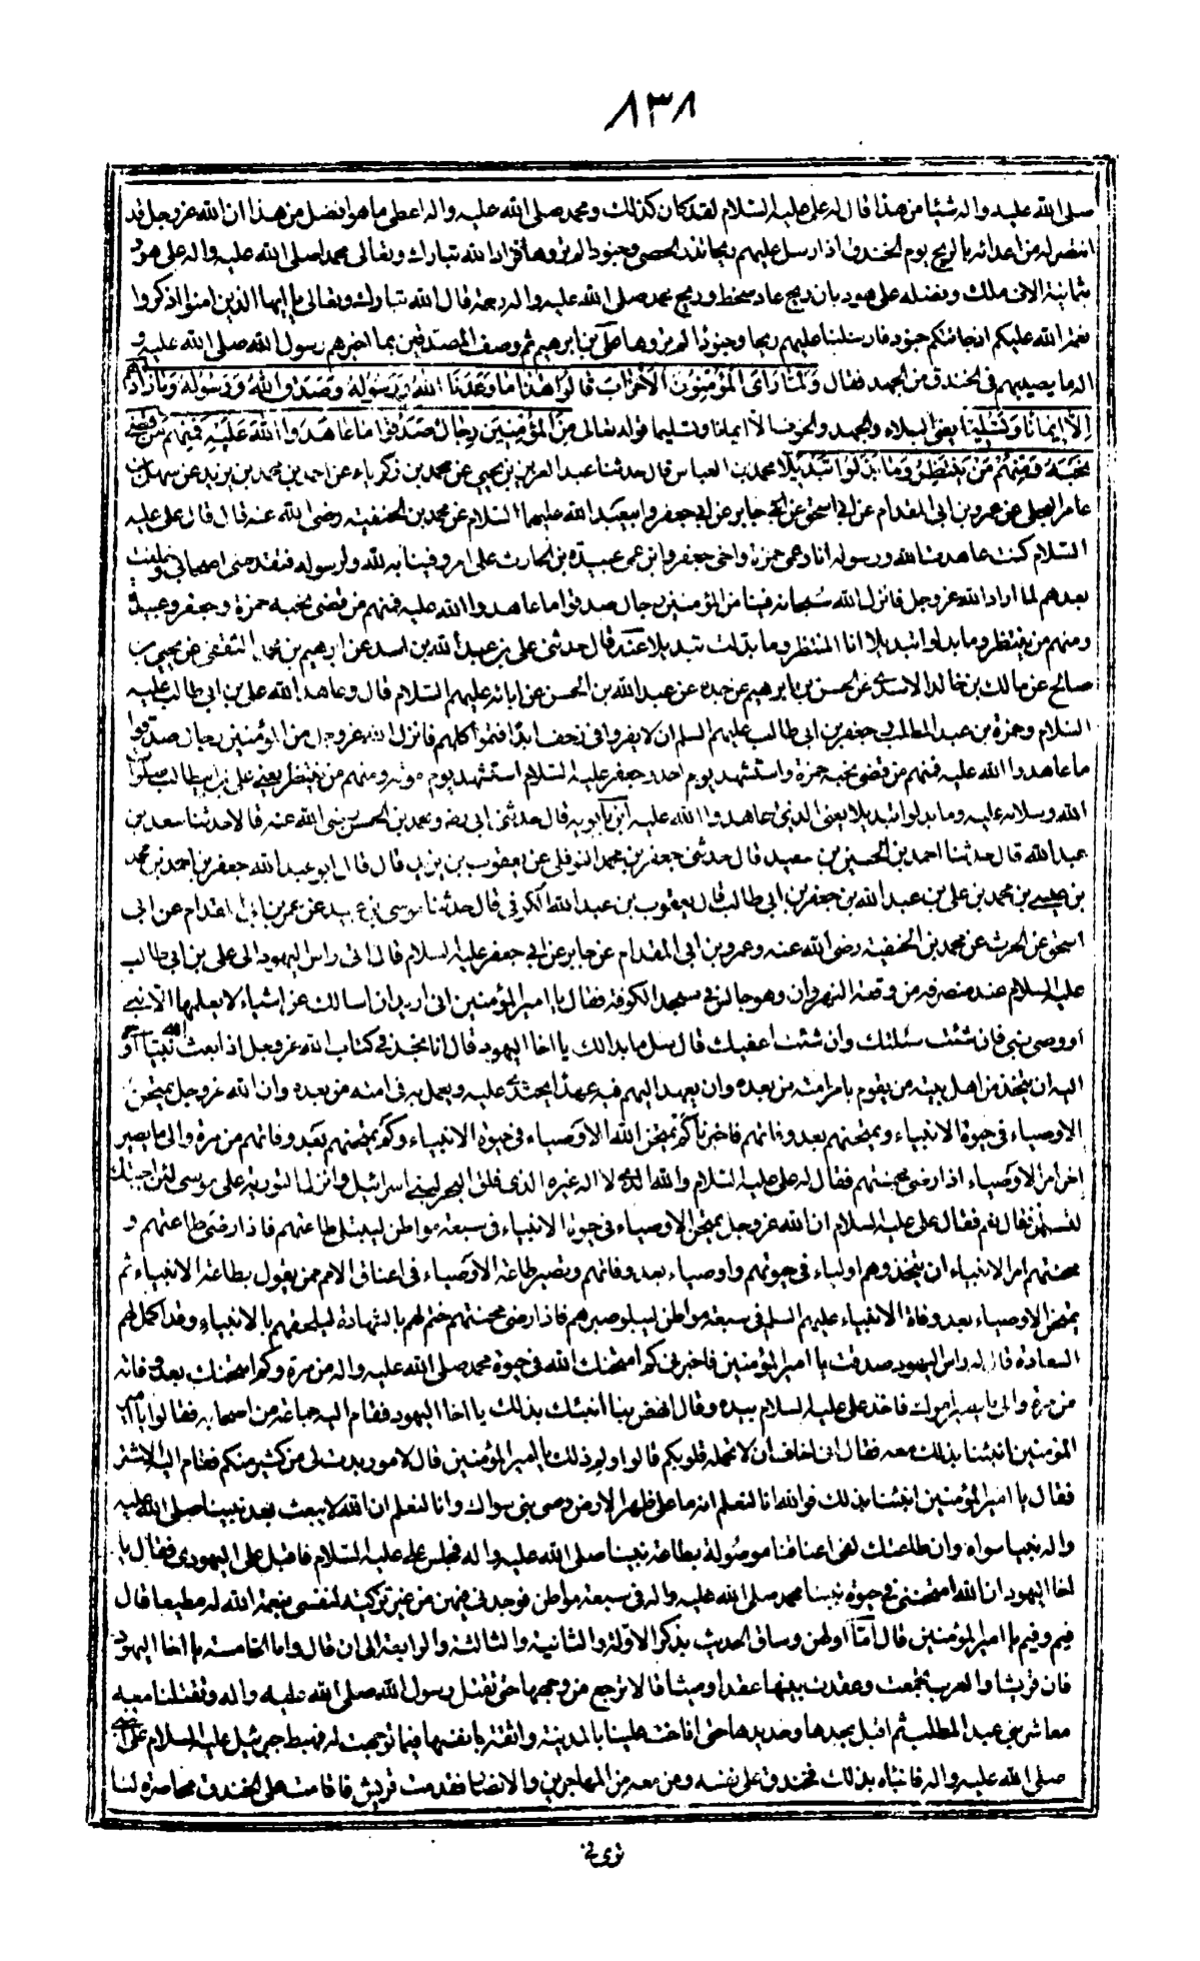 ٨٣٨
صلى الله عليه واله شيئا من هذا قال له على عليه السلام لقد كان كذلك ومحمد صلى الله عليه واله اعطى ما هو افضل من هذا ان الله عز وجل قد
انتصر له من اعدائه بالريح يوم الخندق اذ ارسل عليهم ريحا تذر الحصى وجنودا لم يروها فزاد الله تبارك وتعالى محمدا صلى الله عليه واله على هود
بثمانية الاف ملك وفضله على هود بان ريح عاد سخط وريح محمد صلى الله عليه واله رحمة قال الله تبارك وتعالى يا ايها الذين امنوا اذكروا
نعمة الله عليكم اذ جائتكم جنود فارسلنا عليهم ريحا وجنودا لم تروها على بن ابرهيم ثم وصف المصدقين بما اخبرهم رسول الله صلى الله عليه و
اله ما يصيبهم فى الخندق من الجهد فقال وَلَمَّا رَاَى الْمُؤْمِنُونَ الْاَحْزابَ قالُوا هذا ما وَعَدَنَا اللهُ وَرَسُولُهُ وَصَدَقَ اللهُ وَرَسُولُهُ وَما زادَهُمْ
اِلَّا ايمانًا وَتَسْليمًا يعنى البلاء والجهد والخوف الا ايمانا وتسليما قوله تعالى مِنَ الْمُؤْمِنينَ رِجالٌ صَدَقُوا ما عاهَدُوا اللهَ عَلَيْهِ فَمِنْهُمْ مَنْ قَضى
نَحْبَهُ وَمِنْهُمْ مَنْ يَنْتَظِرُ وَما بَدَّلُوا تَبْديلًا محمد بن العباس قال حدثنا عبد العزيز بن يحيى عن محمد بن زكرياء عن احمد بن محمد بن يزيد عن سهل بن
عامر البجلى عن عمرو بن ابى المقدام عن ابى اسحق عن جابر عن ابى جعفر وابيعبد الله عليهما السلام عن محمد بن الحنفية رضى الله عنه قال قال على عليه
السلام كنت عاهدت الله ورسوله انا وعمى حمزة واخى جعفر وابن عمى عبيدة بن الحارث على امر وفينا به لله ولرسوله فتقدمنى اصحابى وخلفت
بعدهم لما اراد الله عز وجل فانزل الله سبحانه فينا من المؤمنين رجال صدقوا ما عاهدوا الله عليه فمنهم من قضى نحبه حمزة وجعفر وعبيدة
ومنهم من ينتظر وما بدلوا تبديلا انا المنتظر وما بدلت تبديلا عنه قال حدثنى على بن عبد الله بن اسد عن ابرهيم بن محمد الثقفى عن يحيى بن
صالح عن مالك بن خالد الاسدى عن الحسن بن ابرهيم عن جده عن عبد الله بن الحسن عن ابائه عليهم السلام قال وعاهد الله على بن ابى طالب عليه
السلام وحمزة بن عبد المطلب وجعفر بن ابى طالب عليهم السلم ان لا يفروا فى زحف ابدا فتموا كلهم فانزل الله عز وجل من المؤمنين رجال صدقوا
ما عاهدوا الله عليه فمنهم من قضى نحبه حمزة واستشهد يوم احد وجعفر عليه السلام استشهد يوم موته ومنهم من ينتظر يعنى على بن ابيطالب صلوات
الله وسلامه عليه وما بدلوا تبديلا يعنى الذى عاهدوا الله عليه ابن بابويه قال حدثنى ابى رضه ومحمد بن الحسن رضى الله عنه قالا حدثنا سعد بن
عبد الله قال حدثنا احمد بن الحسين بن سعيد قال حدثنى جعفر بن محمد النوفلى عن يعقوب بن يزيد قال قال ابو عبد الله جعفر بن احمد بن محمد
بن عيسى بن محمد بن على بن عبد الله بن جعفر بن ابى طالب قال يعقوب بن عبد الله الكوفى قال حدثنا موسى بن عبيد عن عمر بن ابى المقدام عن ابى
اسحق عن الحرث عن محمد بن الحنفية رضى الله عنه وعمرو بن ابى المقدام عن جابر عن ابى جعفر عليه السلام قال اتى راس اليهود الى على بن ابى طالب
عليه السلام عند منصرفه من وقعة النهروان وهو جالس فى مسجد الكوفة فقال يا امير المؤمنين انى اريد ان اسالك عن اشياء لا يعلمها الا نبى
او وصى نبى فان شئت سئلتك وان شئت اعفيك قال سل ما بدالك يا اخا اليهود قال انا نجد فى كتاب الله عز وجل اذا بعث الله نبيا اوحى
اليه ان يتخذ من اهل بيته من يقوم بامر امته من بعده وان يعهد اليهم فيه عهدا يحتذى عليه ويعمل به فى امته من بعده وان الله عز وجل يمتحن
الاوصياء فى حيوة الانبياء ويمتحنهم بعد وفاتهم فاخبرنا كم يمتحن الله الاوصياء فى حيوة الانبياء وكم يمتحنهم بعد وفاتهم من مرة والى ما يصير
اخر امر الاوصياء اذا رضى محنتهم فقال له على عليه السلام والله الذى لا اله غيره الذى فلق البحر لبنى اسرائيل وانزل التورية على موسى لئن اخبرتك
لتسلمن قال نعم فقال على عليه السلام ان الله عز وجل يمتحن الاوصياء فى حيوة الانبياء فى سبعة مواطن ليبتلى طاعتهم فاذا رضى طاعتهم و
محنتهم امر الانبياء ان يتخذوهم اولياء فى حيوتهم واوصياء بعد وفاتهم ويصير طاعة الاوصياء فى اعناق الامم ممن يقول بطاعة الانبياء ثم
يمتحن الاوصياء بعد وفاة الانبياء عليهم السلم فى سبعة مواطن ليبلو صبرهم فاذا رضى محنتهم ختم لهم بالشهادة ليلحقهم بالانبياء وقد اكمل لهم
السعادة قال له راس اليهود صدقت يا امير المؤمنين فاخبرنى كم امتحنك الله فى حيوة محمد صلى الله عليه واله من مرة وكم امتحنك بعد وفاته
من مرة والى ما يصير امرك فاخذ على عليه السلام بيده وقال انهض بنا انبئك بذلك يا اخا اليهود فقام اليه جماعة من اصحابه فقالوا يا امير
المؤمنين انبئنا بذلك معه فقال انى اخاف ان لا تحمله قلوبكم قالوا ولم ذلك يا امير المؤمنين قال لامور بدت لى من كثير منكم فقام اليه الاشتر
فقال يا امير المؤمنين انبئنا بذلك فوالله انا لنعلم انه ما على ظهر الارض وصى نبى سواك وانا لنعلم ان الله لا يبعث بعد نبينا صلى الله عليه
واله نبيا سواه وان طاعتك لفى اعناقنا موصولة بطاعة نبينا صلى الله عليه واله فجلس على عليه السلام فاقبل على اليهودى فقال يا
اخا اليهود ان الله امتحننى فى حيوة نبينا محمد صلى الله عليه واله فى سبعة مواطن فوجدنى فيهن من غير تزكية لنفسى بنعمة الله له مطيعا قال
فيم وفيم يا امير المؤمنين قال اما اولهن وساق الحديث بذكر الاولة والثانية والثالثة والرابعة الى ان قال واما الخامسة يا اخا اليهود
فان قريشا والعرب تجمعت وعقدت بينها عقدا وميثاقا لا ترجع من وجهها حتى تقتل رسول الله صلى الله عليه واله وتقتلنا معه
معاشر بنى عبد المطلب ثم اقبل بحدها وحديدها حتى اناخت علينا بالمدينة واثقة بانفسها فيما توجهت له فهبط جبرئيل عليه السلام على النبى
صلى الله عليه واله فانباه بذلك فخندق على نفسه ومن معه من المهاجرين والانصار فقدمت قريش فاقامت على الخندق محاصرة لنا
ترى فى